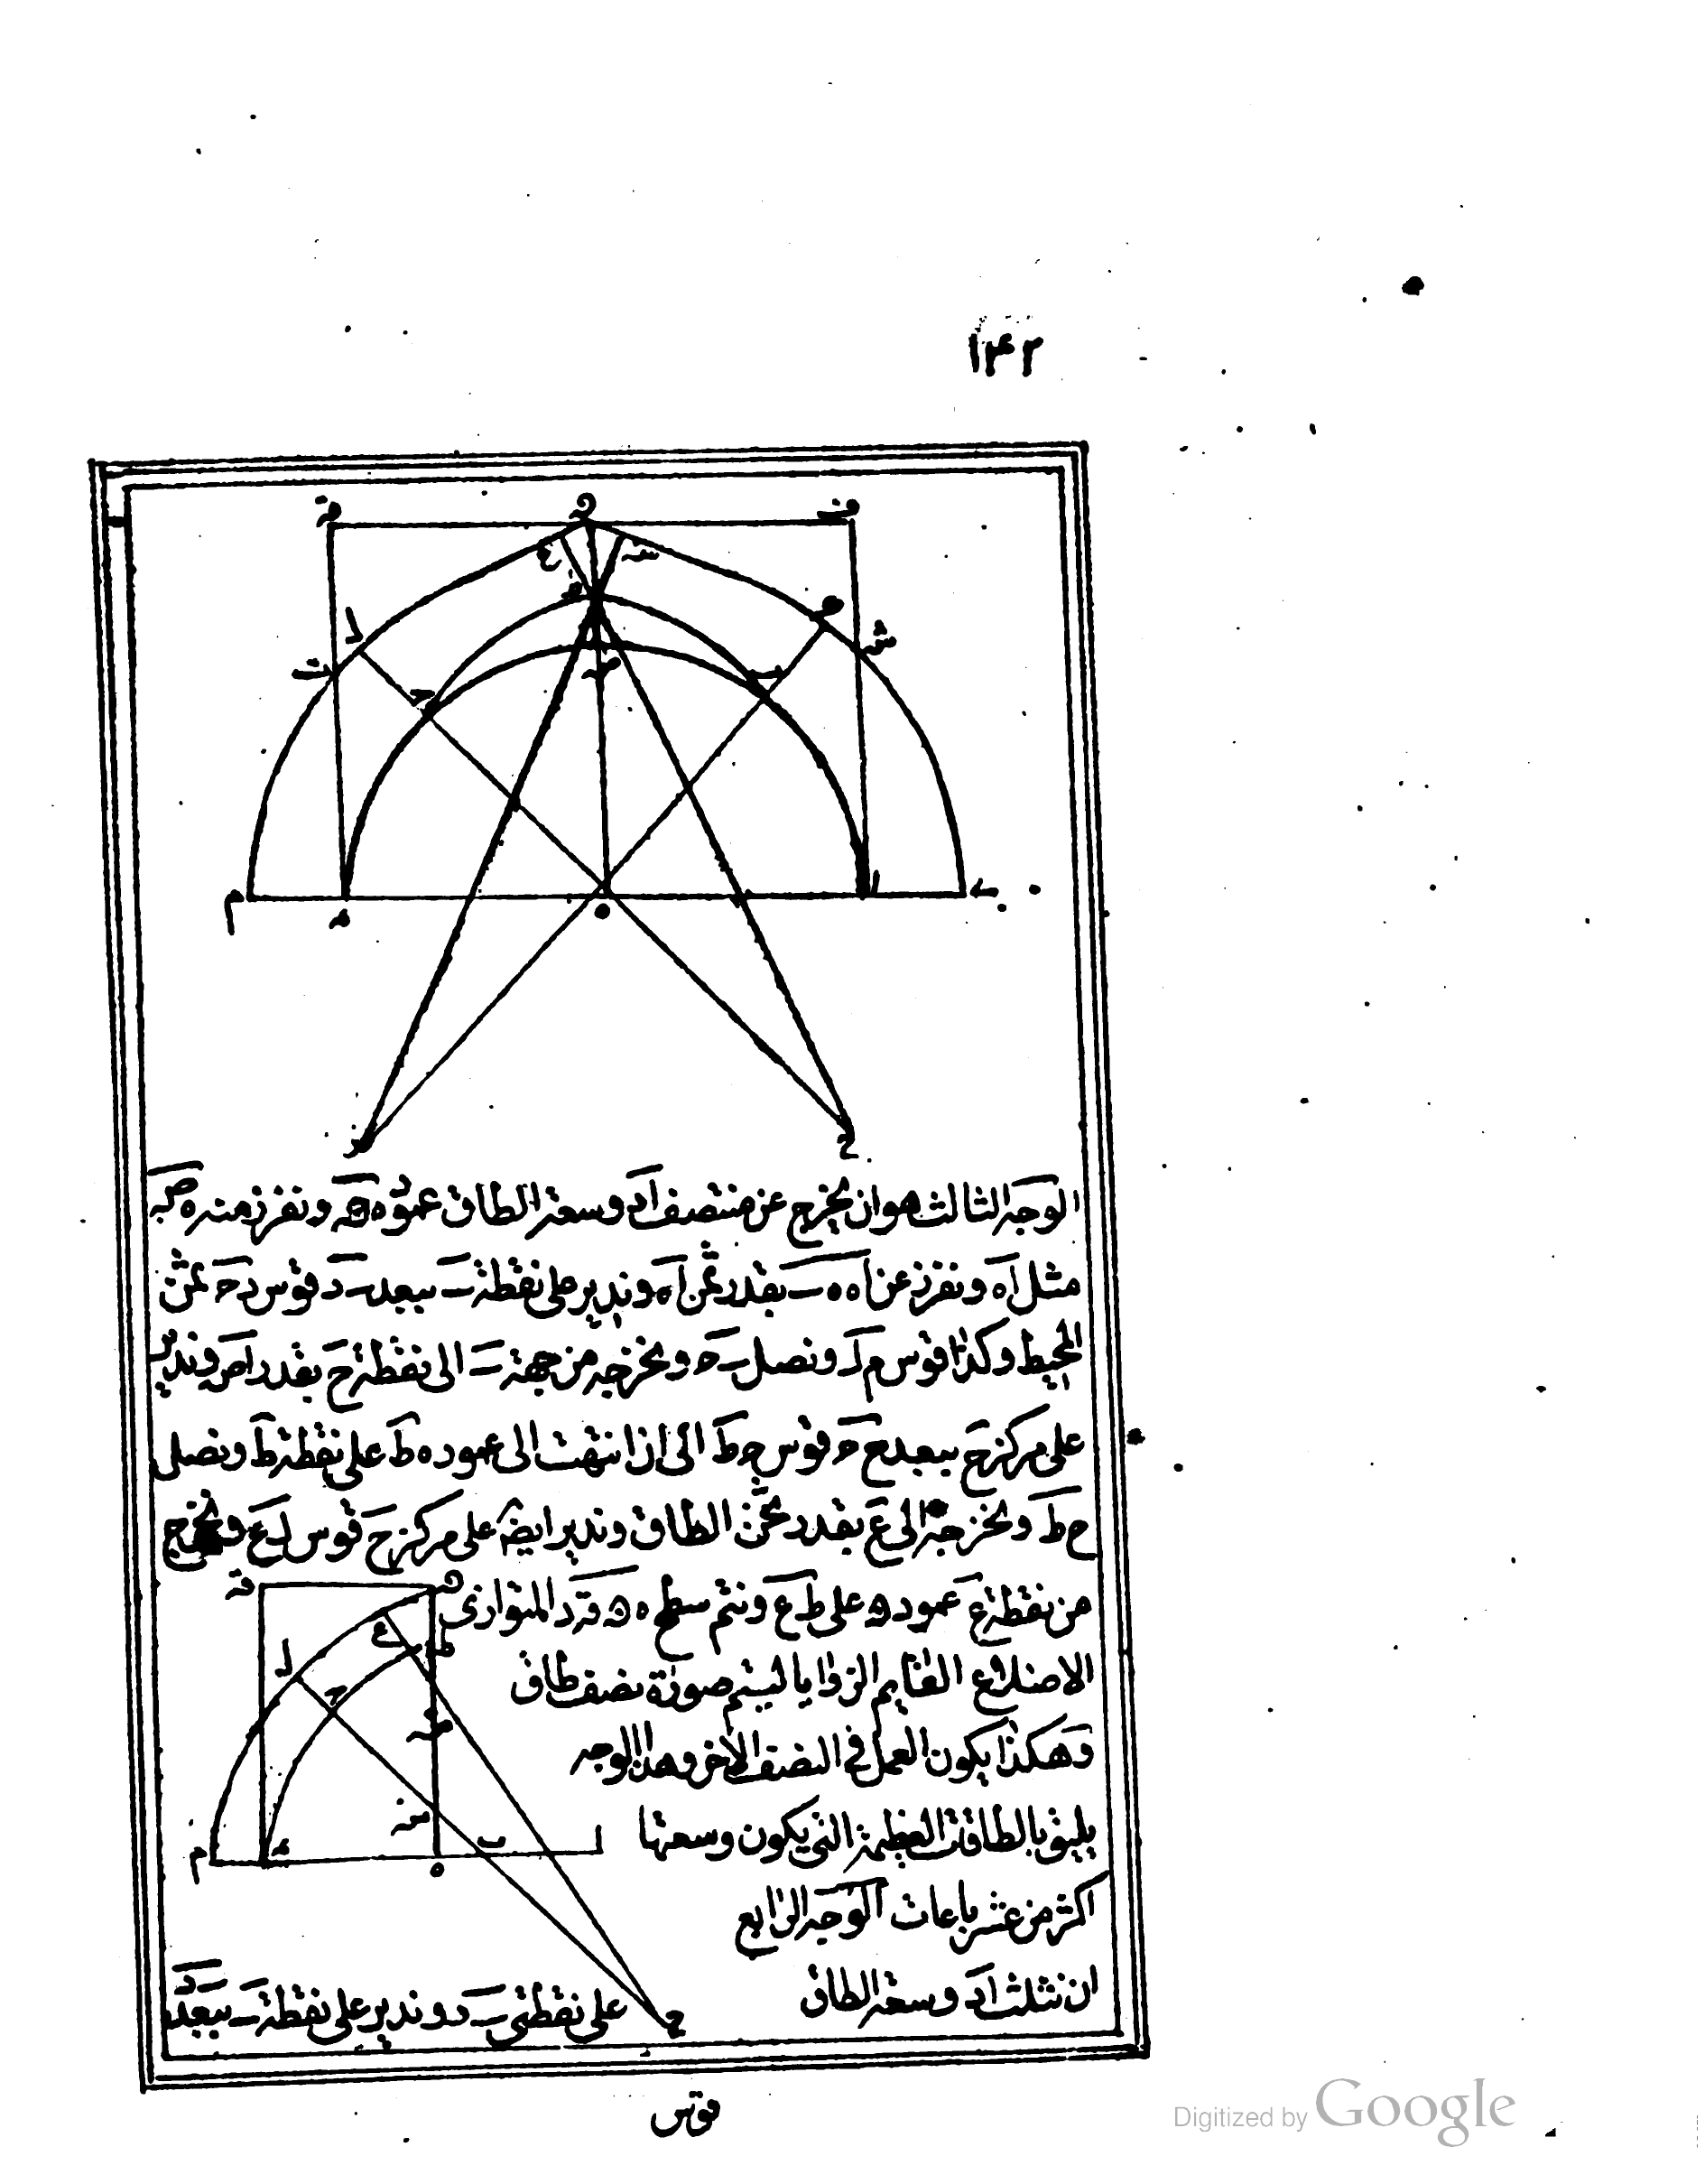 ١٤٢
الوجه الثالث هو ان يخرج عن منتصف اد وسعة الطاق عمود ه ونفرز منه ه ص
مثل اه ونفرز عن اه ه ب بقدر ثمن اه وندير على نقطة ب ببعد ب د قوس د ح ثمن
المحيط وكذا قوس م ل ونصل ب ح ونخرجه من جهة ب الى نقطة ح بقدر اص وندير
على مركز ح ببعد ح ح قوس ح ط الى اذا انتهت الى عمود ه ط على نقطة ط ونصل
ح ط ونخرجه الى ع بقدر ثخن الطاق وندير ايضا على مركز ح قوس ل ع ونخرج
من نقطة ع عمود على ط ع ونتم سطح ه ق د المتوازى
الاضلاع القايم الزوايا ليتم صورة نصف طاق
وهكذا يكون العمل فى النصف الاخر وهذا الوجه
يليق بالطاقات العظيمة التى يكون وسعتها
اكثر من عشر باعات الوجه الرابع
ان نثلث اد وسعة الطاق
على نقطتى ب د وندير على نقطة ب ببعد
قوس
Digitized by Google